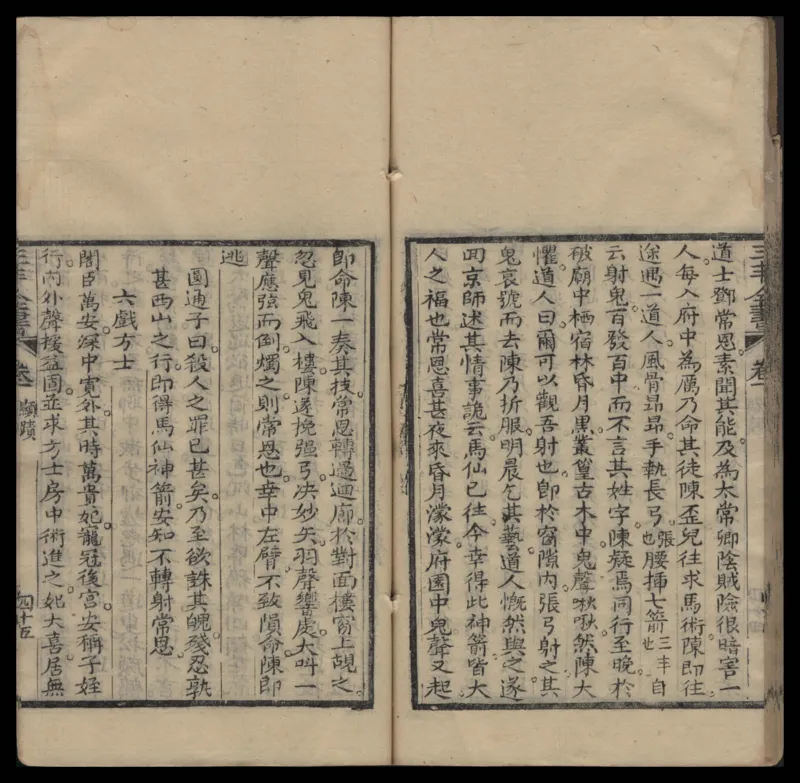 道士鄧常恩素聞其能及為太常卿陰賊險很暗害一
人每入府中為厲乃命其徒陳歪兒往求馬術陳即往
途遇一道人風骨昂昂手執長弓張也腰插七箭三丰自也
云射鬼百發百中而不言其姓字陳疑焉同行至晚於
破廟中栖宿林昏月黒叢篁古木中鬼聲啾啾然陳大
懼道人曰爾可以觀吾射也即於窗隙內張弓射之其
鬼哀號而去陳乃折服明晨乞其藝道人慨然與之遂
囬京師述其情事詭云馬仙已往今幸得此神箭皆大
人之福也常恩喜甚夜來昏月濛濛府園中鬼聲又起
卽命陳一奏其技常恩轉過迴廊於對面樓窗上覘之
忽見鬼飛入樓陳遂挽强弓決妙矢羽聲響處大呌一
聲應弦而倒燭之則常恩也幸中左臂不致隕命陳即
逃
圓通子曰殺人之罪已甚矣乃至欲誅其魄殘忍孰
甚西山之行卽得馬仙神箭安知不轉射常恩
六戲方士
閣臣萬安深中寛外其時萬貴妃寵冠後宫安稱子姪
行內外聲援益固並求方士房中術進之妃大喜居無
三丰全書
卷一
顯蹟
四十五
三丰全書
卷一